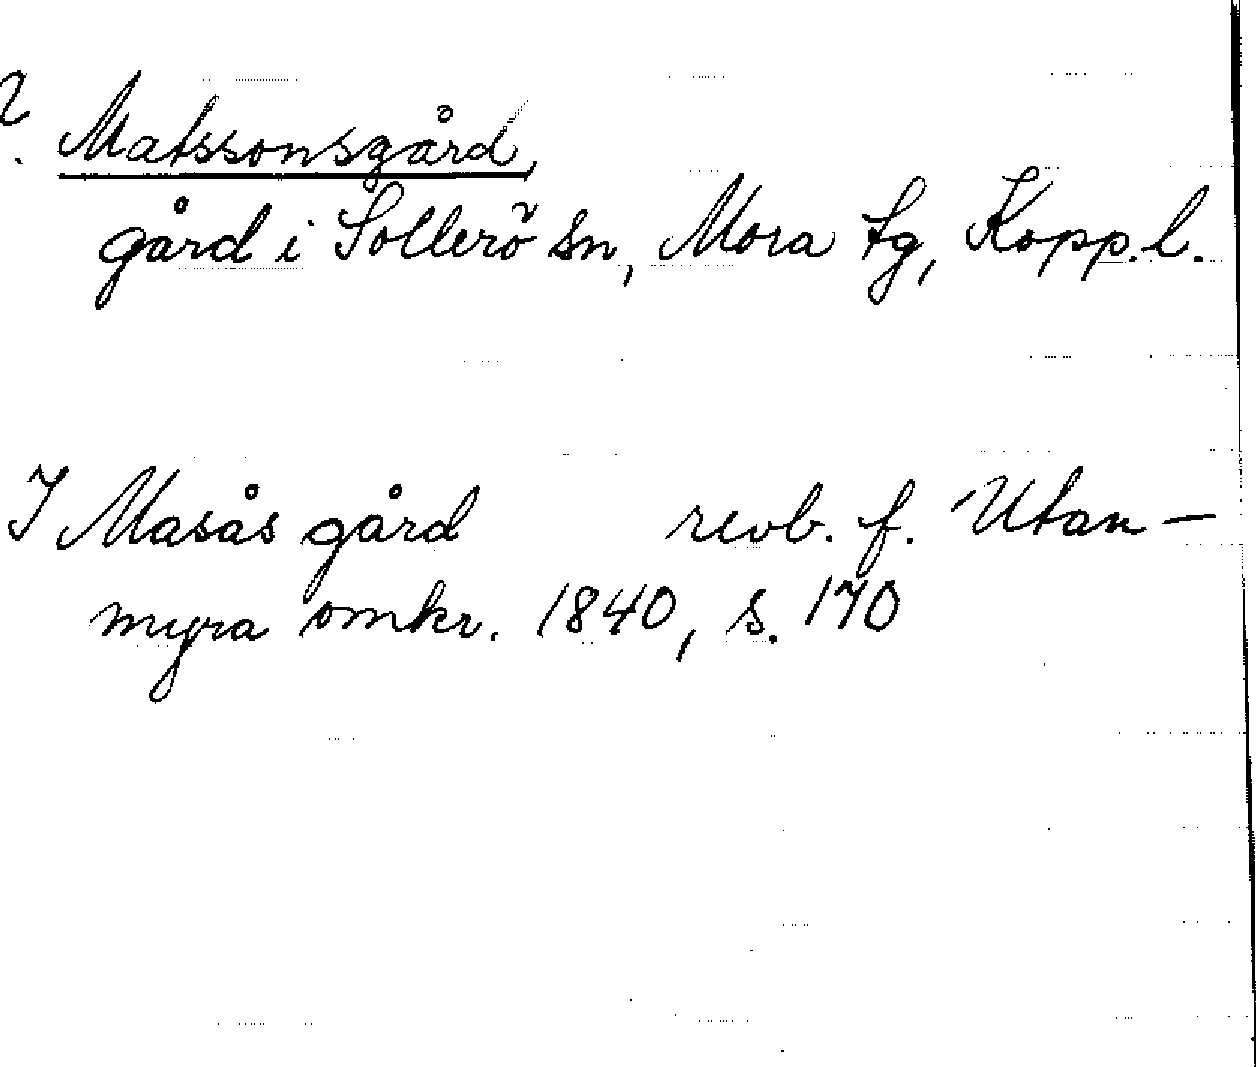 ? Matssonsgård,
gård i Sollerö sn, Mora tg, Kopp. l.
I Masås gård revb. f. Utan-
myra omkr. 1840, s. 170